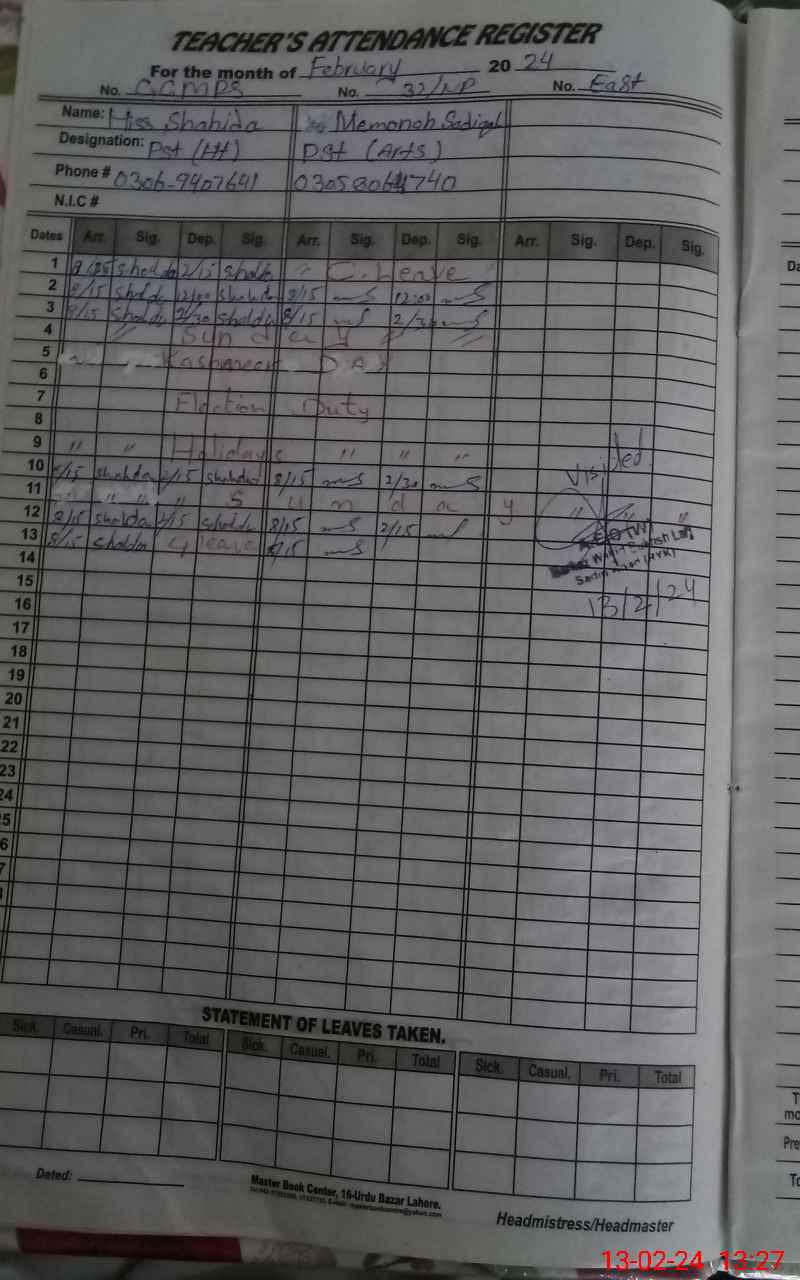 TEACHER'S ATTENDANCE REGISTER
For the month of February 2024
No. G.G.M.P.S No. 32/NP No. East
Name: Miss Shahida Memonah Sadiqah
Designation: Pst (Ht) Pst (Arts)
Phone # 0306-9407641 03058064740
N.I.C #
Dates Arr. Sig. Dep. Sig. Arr. Sig. Dep. Sig. Arr. Sig. Dep. Sig.
1 Shahida 2/15 Shahida " C. Leave "
2 8/15 Shahida 12/00 Shahida 8/15 mS 12:00 mS
3 8/15 Shahida 2/30 Shahida 8/15 mS 2/30 mS
4 " Sunday "
5 Kashmeer DAY
6
7 Election Duty
8
9 " " Holidays " " "
10 8/15 Shahida 2/15 Shahida 8/15 mS 2/30 mS
11 " " " S u n d a y " "
12 8/15 Shahida 2/15 Shahida 8/15 mS 2/15 mS
13 8/15 Shahida leave 8/15 mS
14
15
16
17
18
19
20
21
22
23
24
5
6
7
Visited.
13/2/24
STATEMENT OF LEAVES TAKEN.
Sick. Casual. Pri. Total Sick. Casual. Pri. Total Sick. Casual. Pri. Total
Dated:
Master Book Center, 16-Urdu Bazar Lahore.
Headmistress/Headmaster
13-02-24 13:27